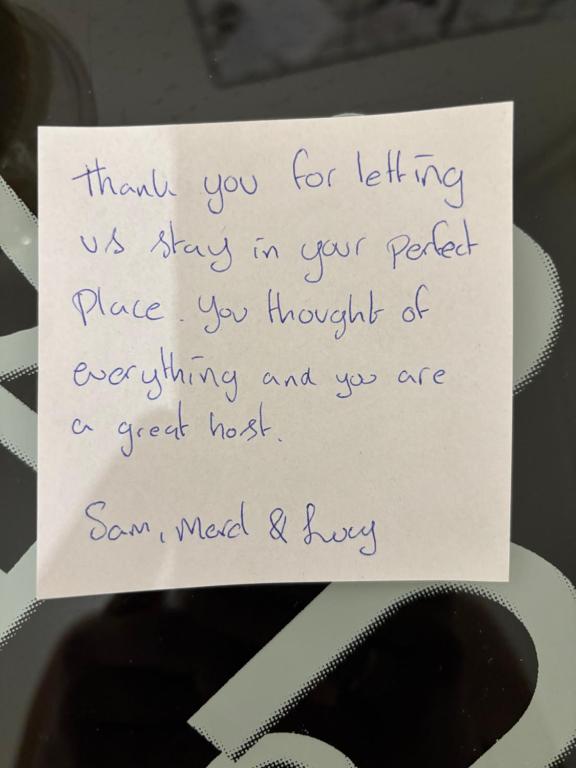 Thank you for letting
us stay in your perfect
place. You thought of
everything and you are
a great host.
Sam, Merd & Lucy